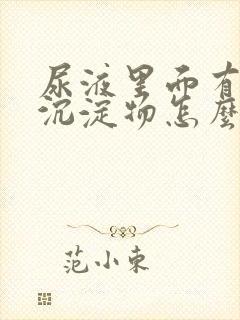 尿液里面有
沉淀物怎麼
范小東